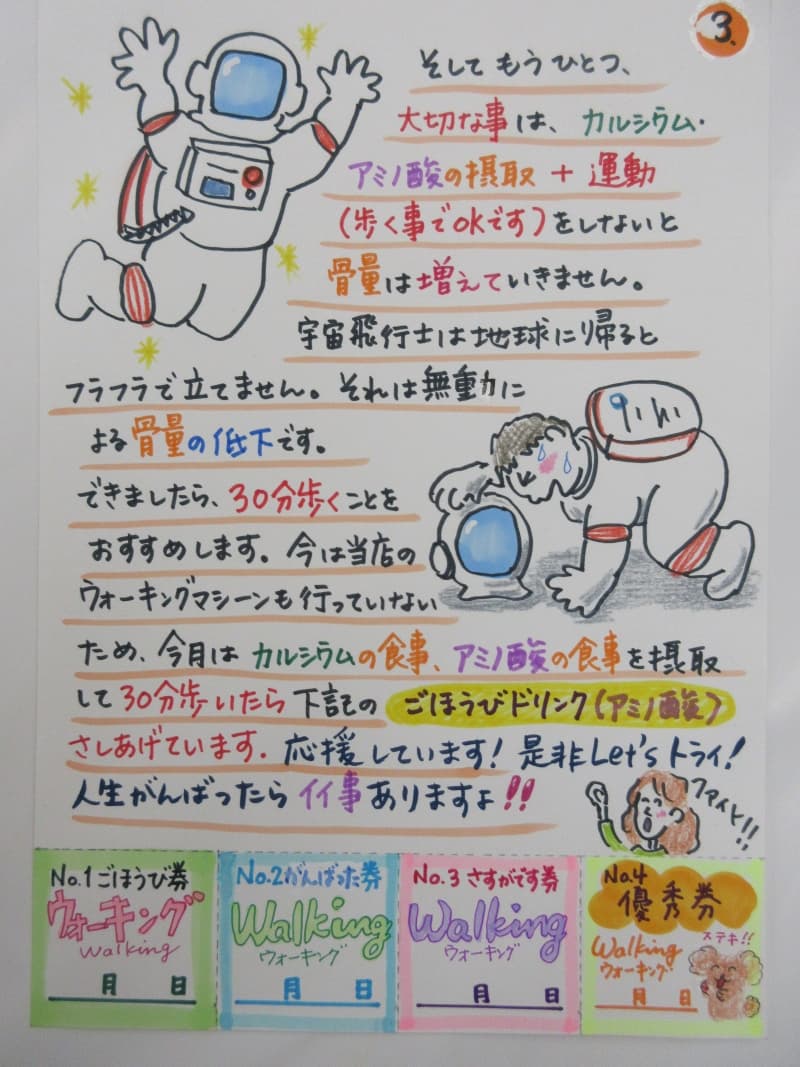 3.
そしてもうひとつ、
大切な事は、カルシウム・
アミノ酸の摂取+運動
(歩く事でOKです)をしないと
骨量は増えていきません。
宇宙飛行士は地球に帰ると
フラフラで立てません。それは無動力に
よる骨量の低下です。
できましたら、30分歩くことを
おすすめします。今は当店の
ウォーキングマシーンも行っていない
ため、今月はカルシウムの食事、アミノ酸の食事を摂取
して30分歩いたら下記のごほうびドリンク(アミノ酸)
さしあげています。応援しています!是非Let'sトライ!
人生がんばったらイイ事ありますよ!!
ファイト!!
No.1ごほうび券
ウォーキング
Walking
月 日
No.2がんばった券
Walking
ウォーキング
月 日
No.3 さすがです券
Walking
ウォーキング
月 日
No.4
優秀券
ステキ!!
Walking
ウォーキング
月 日